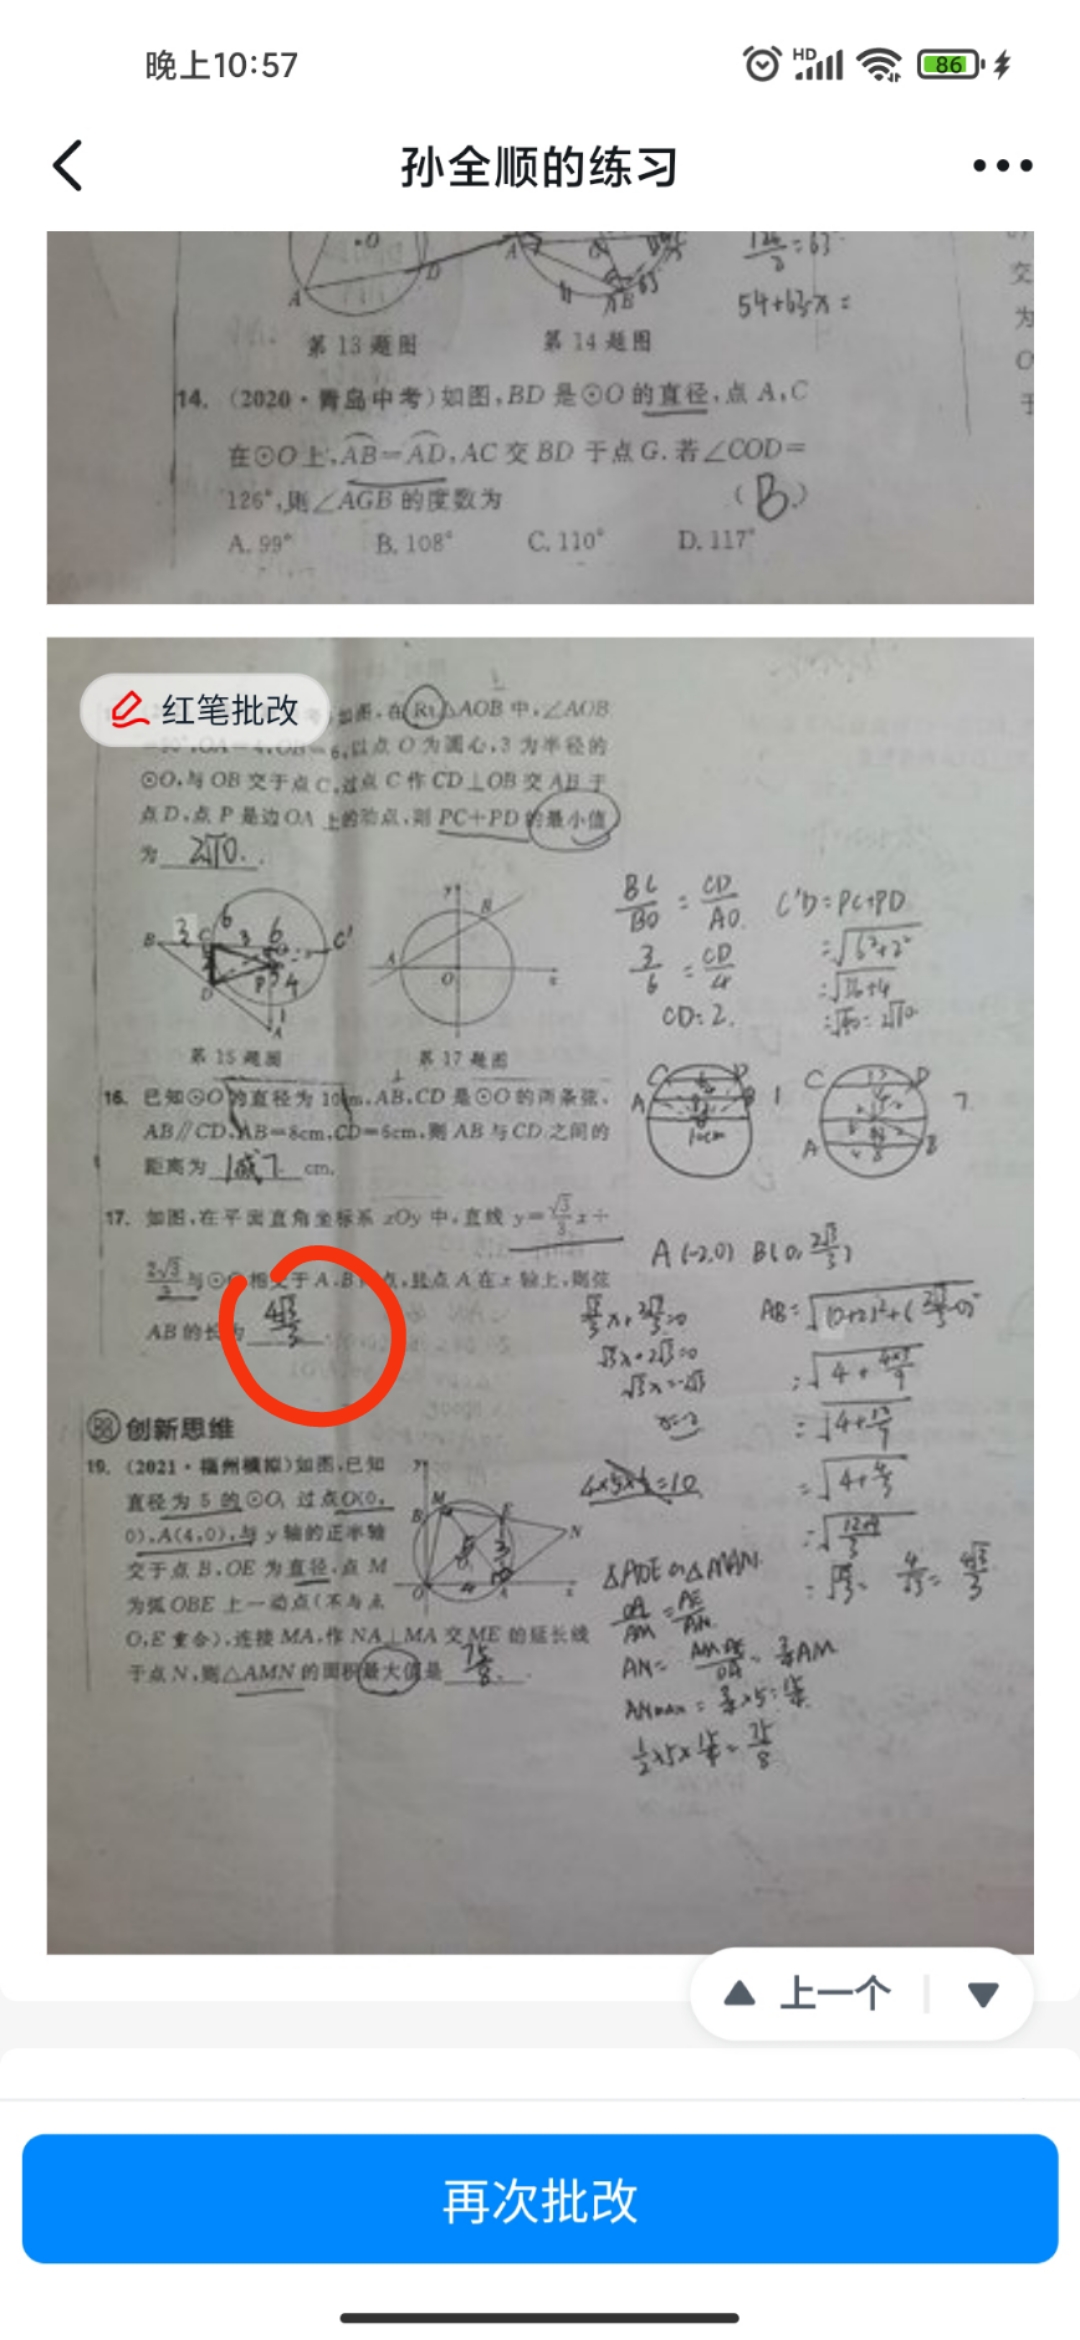 晚上10:57
HD
86
孙全顺的练习
第 13 题图
第 14 题图
54+63-x=
14. (2020·青岛中考)如图,BD 是⊙O 的直径,点 A,C
在⊙O 上,AB=AD,AC 交 BD 于点 G. 若∠COD=
126°,则∠AGB 的度数为 (B)
A. 99° B. 108° C. 110° D. 117°
红笔批改
如图,在 Rt△AOB 中,∠AOB
以点 O 为圆心,3 为半径的
⊙O,与 OB 交于点 C,过点 C 作 CD⊥OB 交 AB 于
点 D,点 P 是边 OA 上的动点,则 PC+PD 的最小值
为 2√10.
BC/BO = CD/AO.
3/6 = CD/4
CD=2.
C'D=PC+PD
=√6²+2²
=√36+4
=√40=2√10
第 15 题图
第 17 题图
16. 已知⊙O 的直径为 10cm,AB,CD 是⊙O 的两条弦,
AB∥CD,AB=8cm,CD=6cm,则 AB 与 CD 之间的
距离为 1或7 cm.
17. 如图,在平面直角坐标系 xOy 中,直线 y=√3/3 x+
2√3/3 与⊙O 相交于 A,B 两点,且点 A 在 x 轴上,则弦
AB 的长为 4√3/3
A(-2,0) B(0,2√3/3)
√3/3x+2√3/3=0
√3x+2√3=0
√3x=-2√3
x=-2
创新思维
19. (2021·福州模拟)如图,已知
直径为 5 的⊙O, 过点O(0,
0),A(4,0),与 y 轴的正半轴
交于点 B,OE 为直径,点 M
为弧 OBE 上一动点(不与点
O,E 重合),连接 MA,作 NA⊥MA 交 ME 的延长线
于点 N,则△AMN 的面积最大值是 75/8.
ANmax = 3/4×5=15/4
1/2×5×15/4=75/8
上一个
再次批改